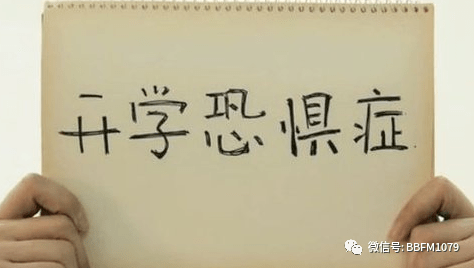 开学恐惧症
微信号: BBFM1079